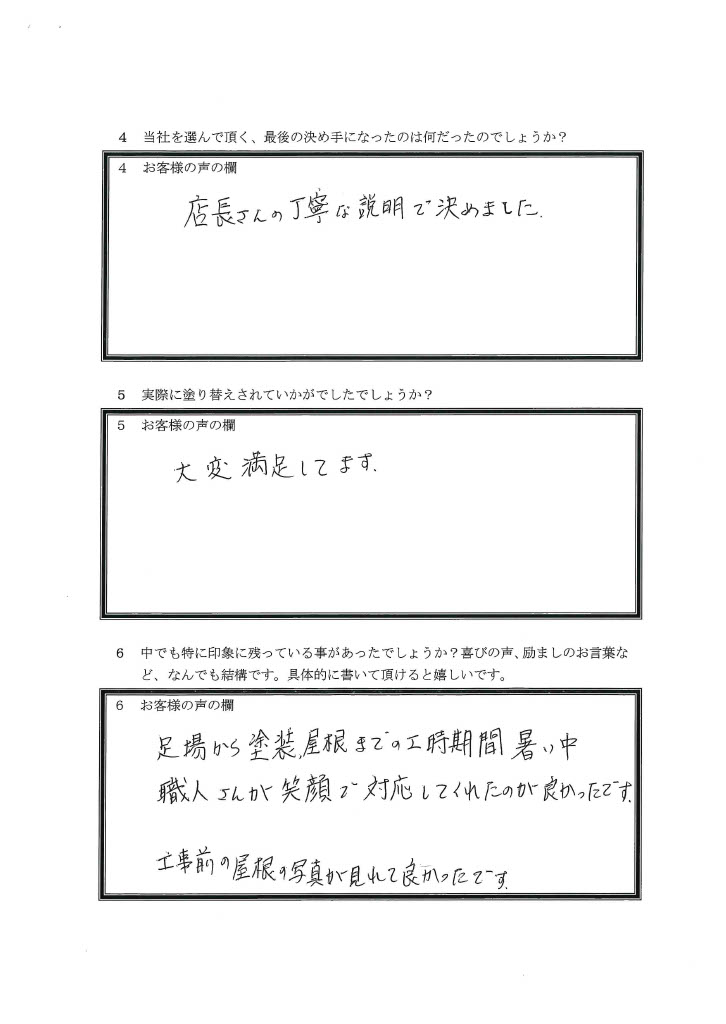 4 当社を選んで頂く、最後の決め手になったのは何だったのでしょうか？
4 お客様の声の欄
店長さんの丁寧な説明で決めました.
5 実際に塗り替えされていかがでしたでしょうか？
5 お客様の声の欄
大変満足してます.
6 中でも特に印象に残っている事があったでしょうか？喜びの声、励ましのお言葉な
ど、なんでも結構です。具体的に書いて頂けると嬉しいです。
6 お客様の声の欄
足場から塗装,屋根までの工時期間暑い中
職人さんが笑顔で対応してくれたのが良かったです.
工事前の屋根の写真が見れて良かったです.